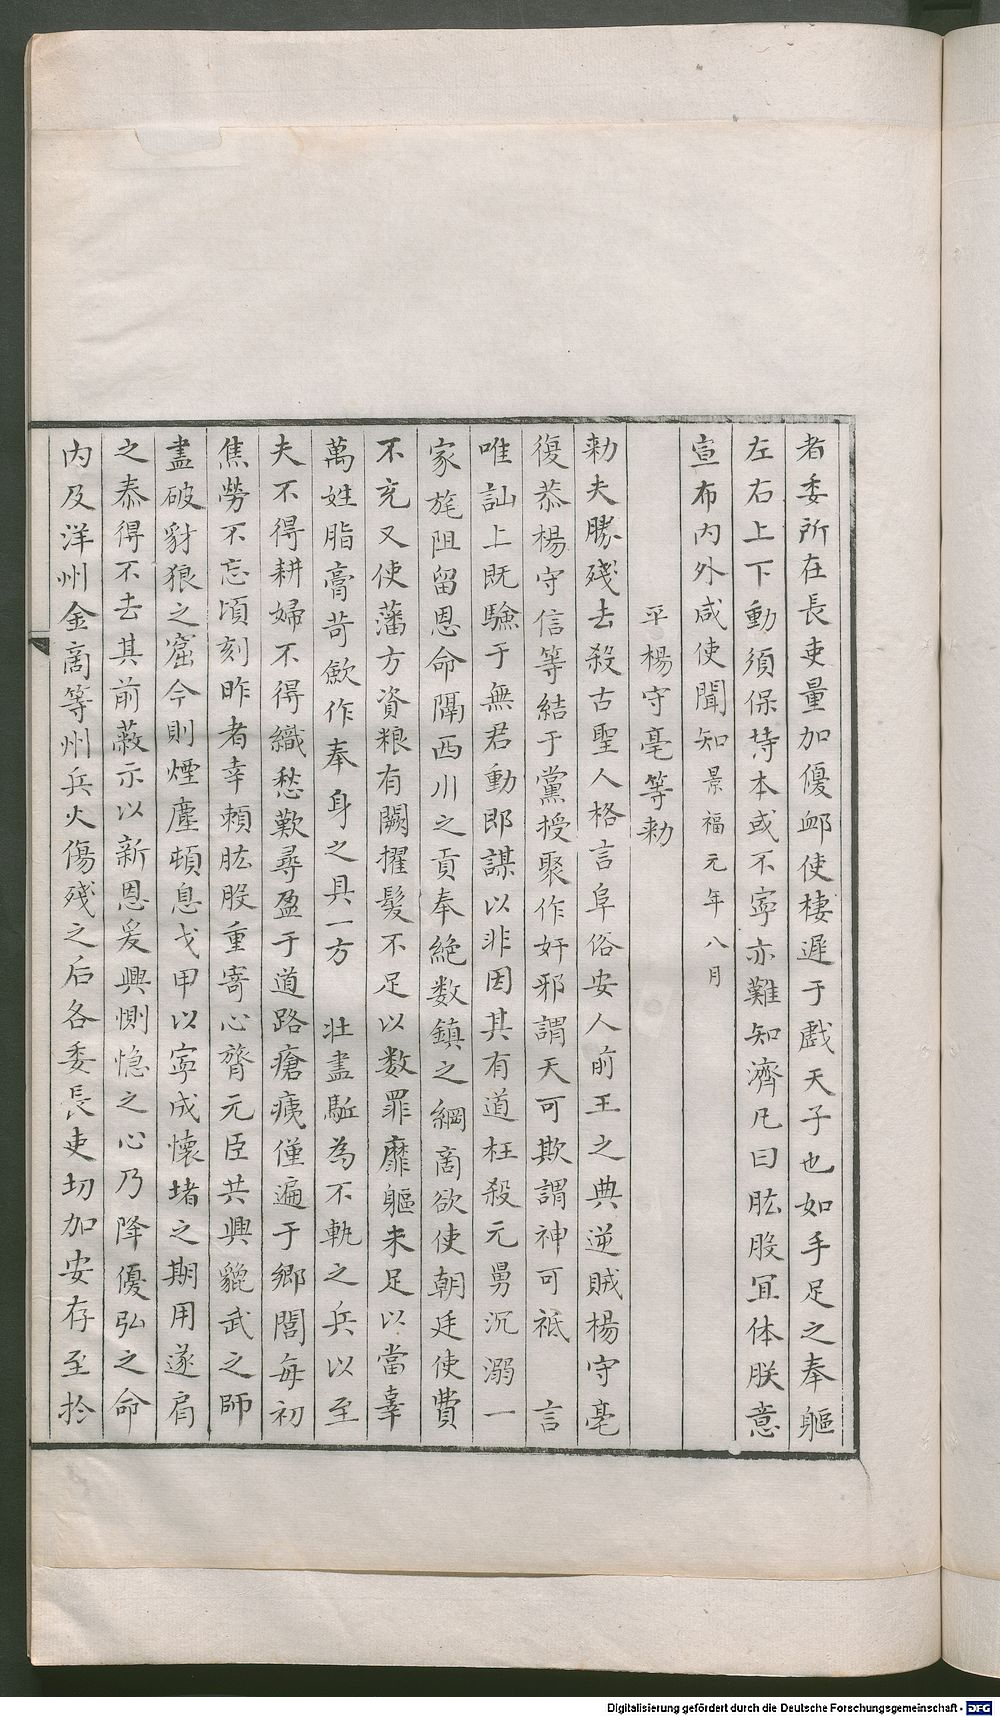 者委所在長吏量加優卹使棲遲于戲天子也如手足之奉軀
左右上下動須保持本或不寧亦難知濟凡曰肱股宜体朕意
宣布内外咸使聞知景福元年八月
平楊守亮等勅
勅夫勝殘去殺古聖人格言阜俗安人前王之典逆賊楊守亮
復恭楊守信等結于黨授聚作奸邪謂天可欺謂神可祗 言
唯訕上既驗于無君動即謀以非因其有道枉殺元舅沉溺一
家旄阻留恩命隔西川之貢奉絶数鎮之綱商欲使朝廷使費
不充又使藩方資粮有闕擢髮不足以数罪靡軀未足以當辜
萬姓脂膏苛歛作奉身之具一方 壮盡駈為不軌之兵以至
夫不得耕婦不得織愁歎尋盈于道路瘡痍僅遍于鄉閭每初
焦勞不忘頃刻昨者幸頼肱股重寄心膂元臣共興貔武之師
盡破豺狼之窟今則煙塵頓息戈甲以寧成懷堵之期用遂肩
之泰得不去其前蔽示以新恩爰興惻隐之心乃降優弘之命
内及洋州金商等州兵火傷殘之后各委長吏切加安存至扵
Digitalisierung gefördert durch die Deutsche Forschungsgemeinschaft - DFG